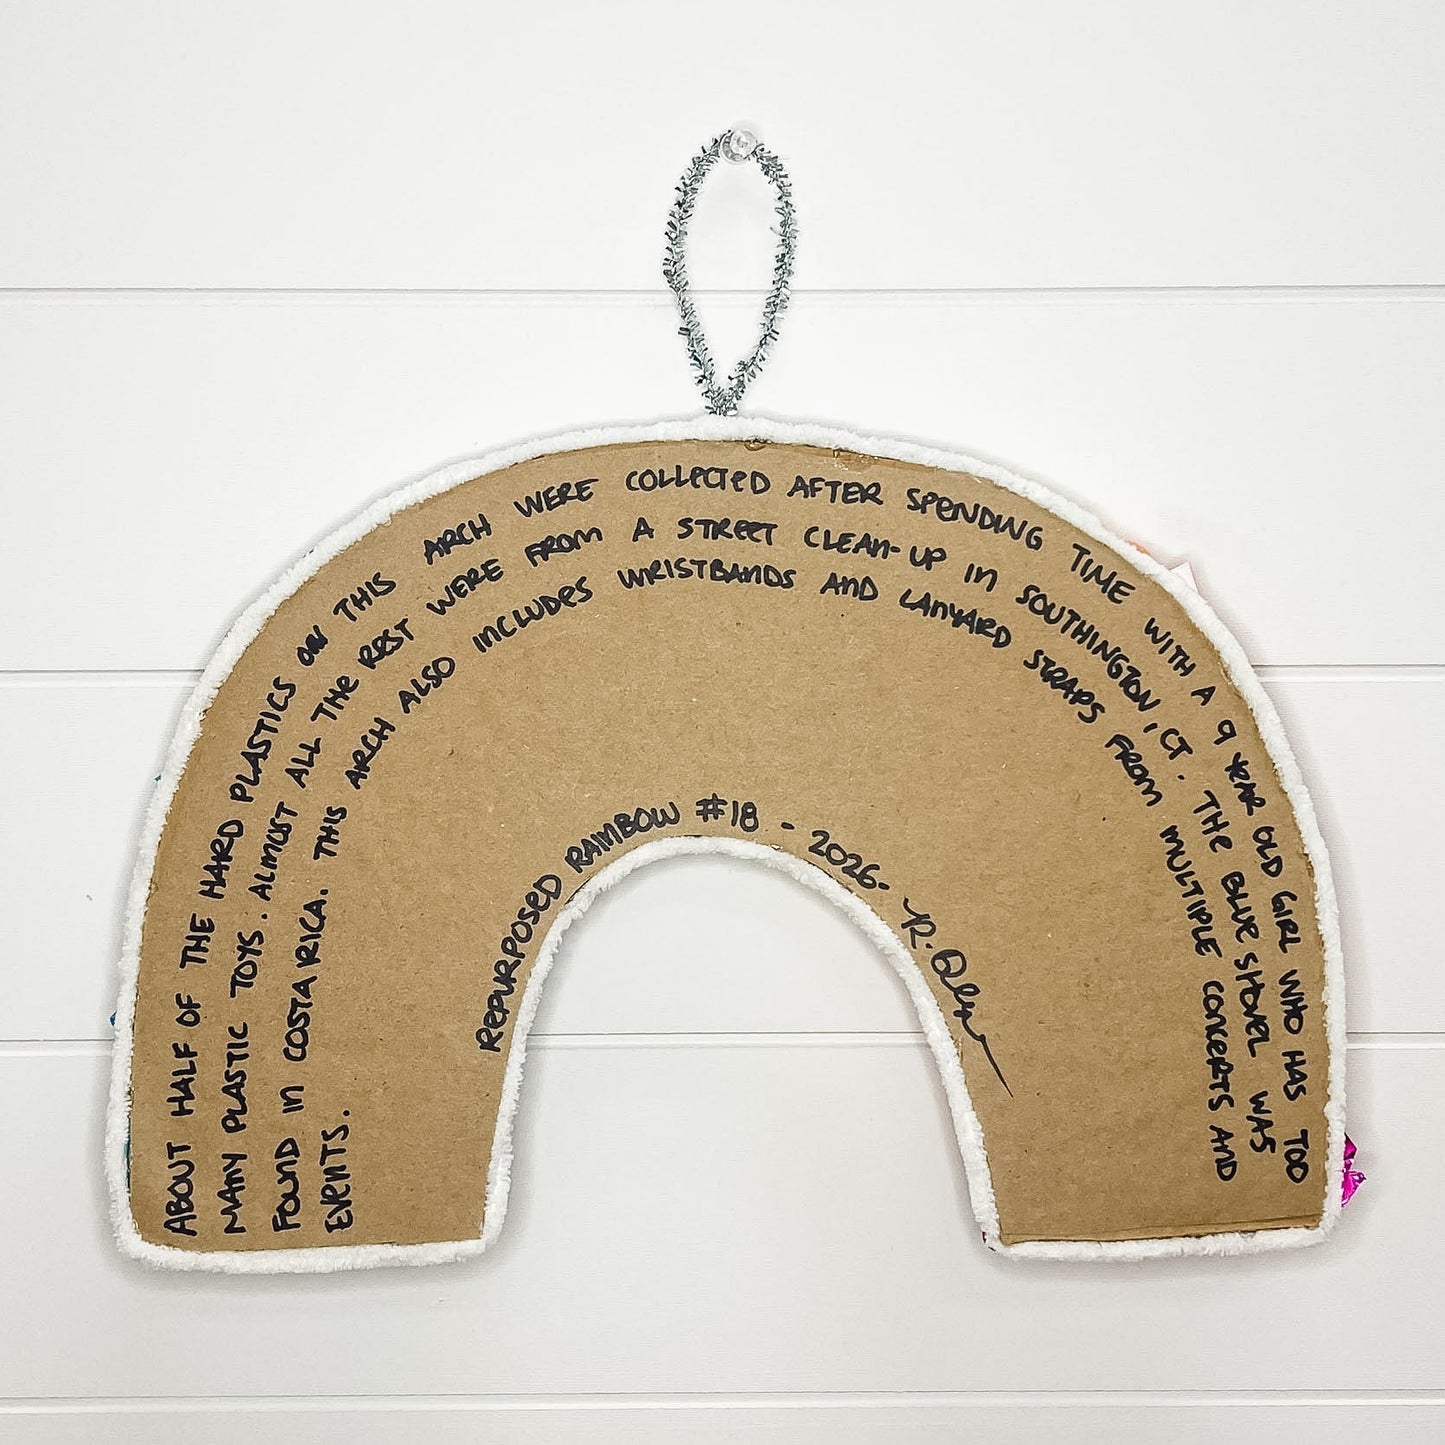 ABOUT HALF OF THE HARD PLASTICS ON THIS ARCH WERE COLLECTED AFTER SPENDING TIME WITH A 9 YEAR OLD GIRL WHO HAS TOO
MANY PLASTIC TOYS. ALMOST ALL THE REST WERE FROM A STREET CLEAN-UP IN SOUTHINGTON, CT. THE BLUE SHOVEL WAS
FOUND IN COSTA RICA. THIS ARCH ALSO INCLUDES WRISTBANDS AND LANYARD STRAPS FROM MULTIPLE CONCERTS AND
EVENTS.
REPURPOSED RAINBOW #18 - 2026- R.